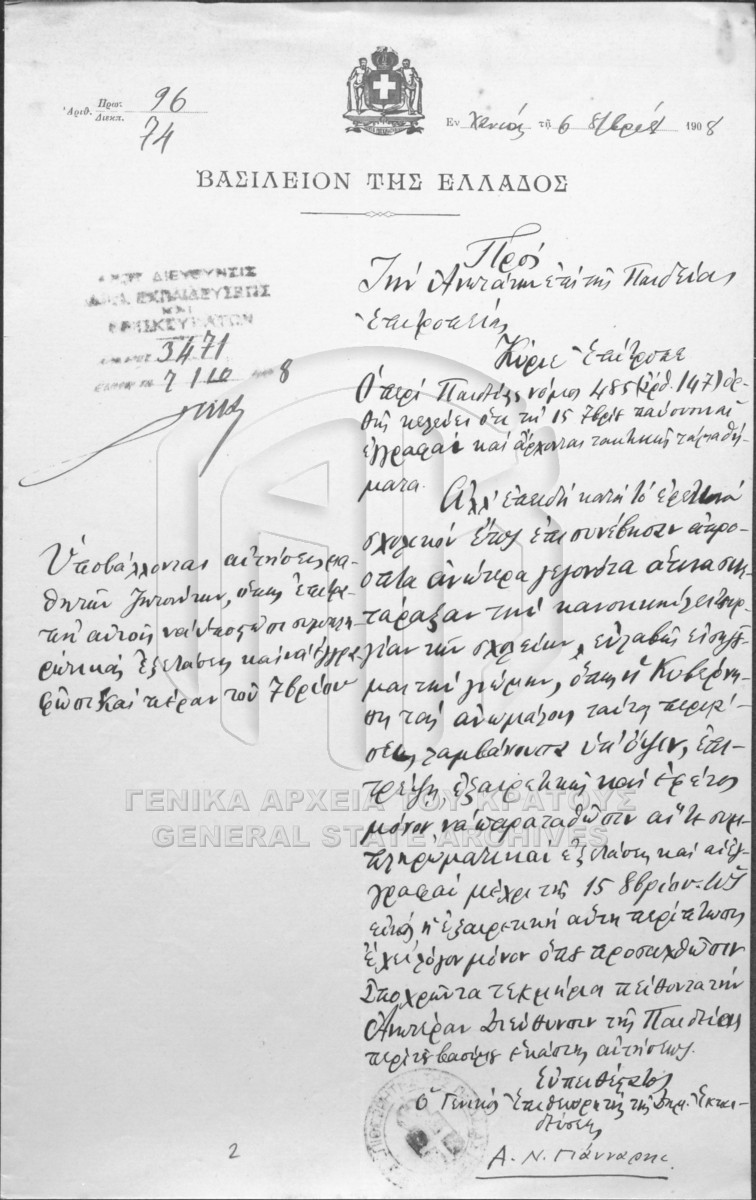 Ἀριθ. Πρωτ. 96
Διεκπ. 74
Ἐν Χανίοις τῇ 6 8/βρίου 1908
ΒΑΣΙΛΕΙΟΝ ΤΗΣ ΕΛΛΑΔΟΣ
ΔΙΕΥΘΥΝΣΙΣ
ΕΚΠΑΙΔΕΥΣΕΩΣ
ΚΑΙ
ΘΡΗΣΚΕΥΜΑΤΩΝ
3471
7/10 8
Πρὸς
Τὴν Ἀνωτάτην ἐπὶ τῆς Παιδείας
Ἐπιτροπείαν
Κύριε Ἐπίτροπε
Ὁ περὶ Παιδείας νόμος 485 (ἄρθ. 147) ὁρ-
θῶς κελεύει ὅτι τῇ 15 7βρίου παύουσιν αἱ
ἐγγραφαὶ καὶ ἄρχονται τακτικῶς τὰ μαθή-
ματα.
Ἀλλ' ἐπειδὴ κατὰ τὸ ἐφετεινὸν
σχολικὸν ἔτος ἐπισυνέβησαν ἀπρό-
οπτα ἀνώτερα γεγονότα ἅτινα συνε-
τάραξαν τὴν κανονικὴν λειτουρ-
γίαν τῶν σχολείων, εὐλαβῶς εἰσηγοῦ-
μαι τὴν γνώμην, ὅπως ἡ Κυβέρνη-
σις τὰς ἀνωμάλους ταύτας περιστά-
σεις λαμβάνουσα ὑπ' ὄψιν, ἐπι-
τρέψῃ ἐξαιρετικῶς καὶ ἐφέτος
μόνον νὰ παραταθῶσιν αἵ τε συμ-
πληρωματικαὶ ἐξετάσεις καὶ αἱ ἐγ-
γραφαὶ μέχρι τῆς 15 8βρίου.
εἰκὸς ἡ ἐξαιρετικὴ αὕτη περίπτωσις
ἔχει λόγον μόνον ὅταν προσαχθῶσιν
ἀποχρῶντα τεκμήρια πείθοντα τὴν
Ἀνωτέραν Διεύθυνσιν τῆς Παιδείας
περὶ τῆς βάσεως ἑκάστης αἰτήσεως.
Εὐπειθέστατος
Ὁ Γενικὸς Ἐπιθεωρητὴς τῆς Δημ. Ἐκπαι-
δεύσεως
Α. Ν. Γιάνναρης
Ὑποβάλλονται αἰτήσεις μα-
θητῶν ζητούντων, ὅπως ἐπιτρα-
πῇ αὐτοῖς νὰ ὑποστῶσι συμπλη-
ρωτικὰς ἐξετάσεις καὶ νὰ ἐγγρα-
φῶσι καὶ πέραν τοῦ 7βρίου
ΓΕΝΙΚΑ ΑΡΧΕΙΑ ΤΟΥ ΚΡΑΤΟΥΣ
GENERAL STATE ARCHIVES
2